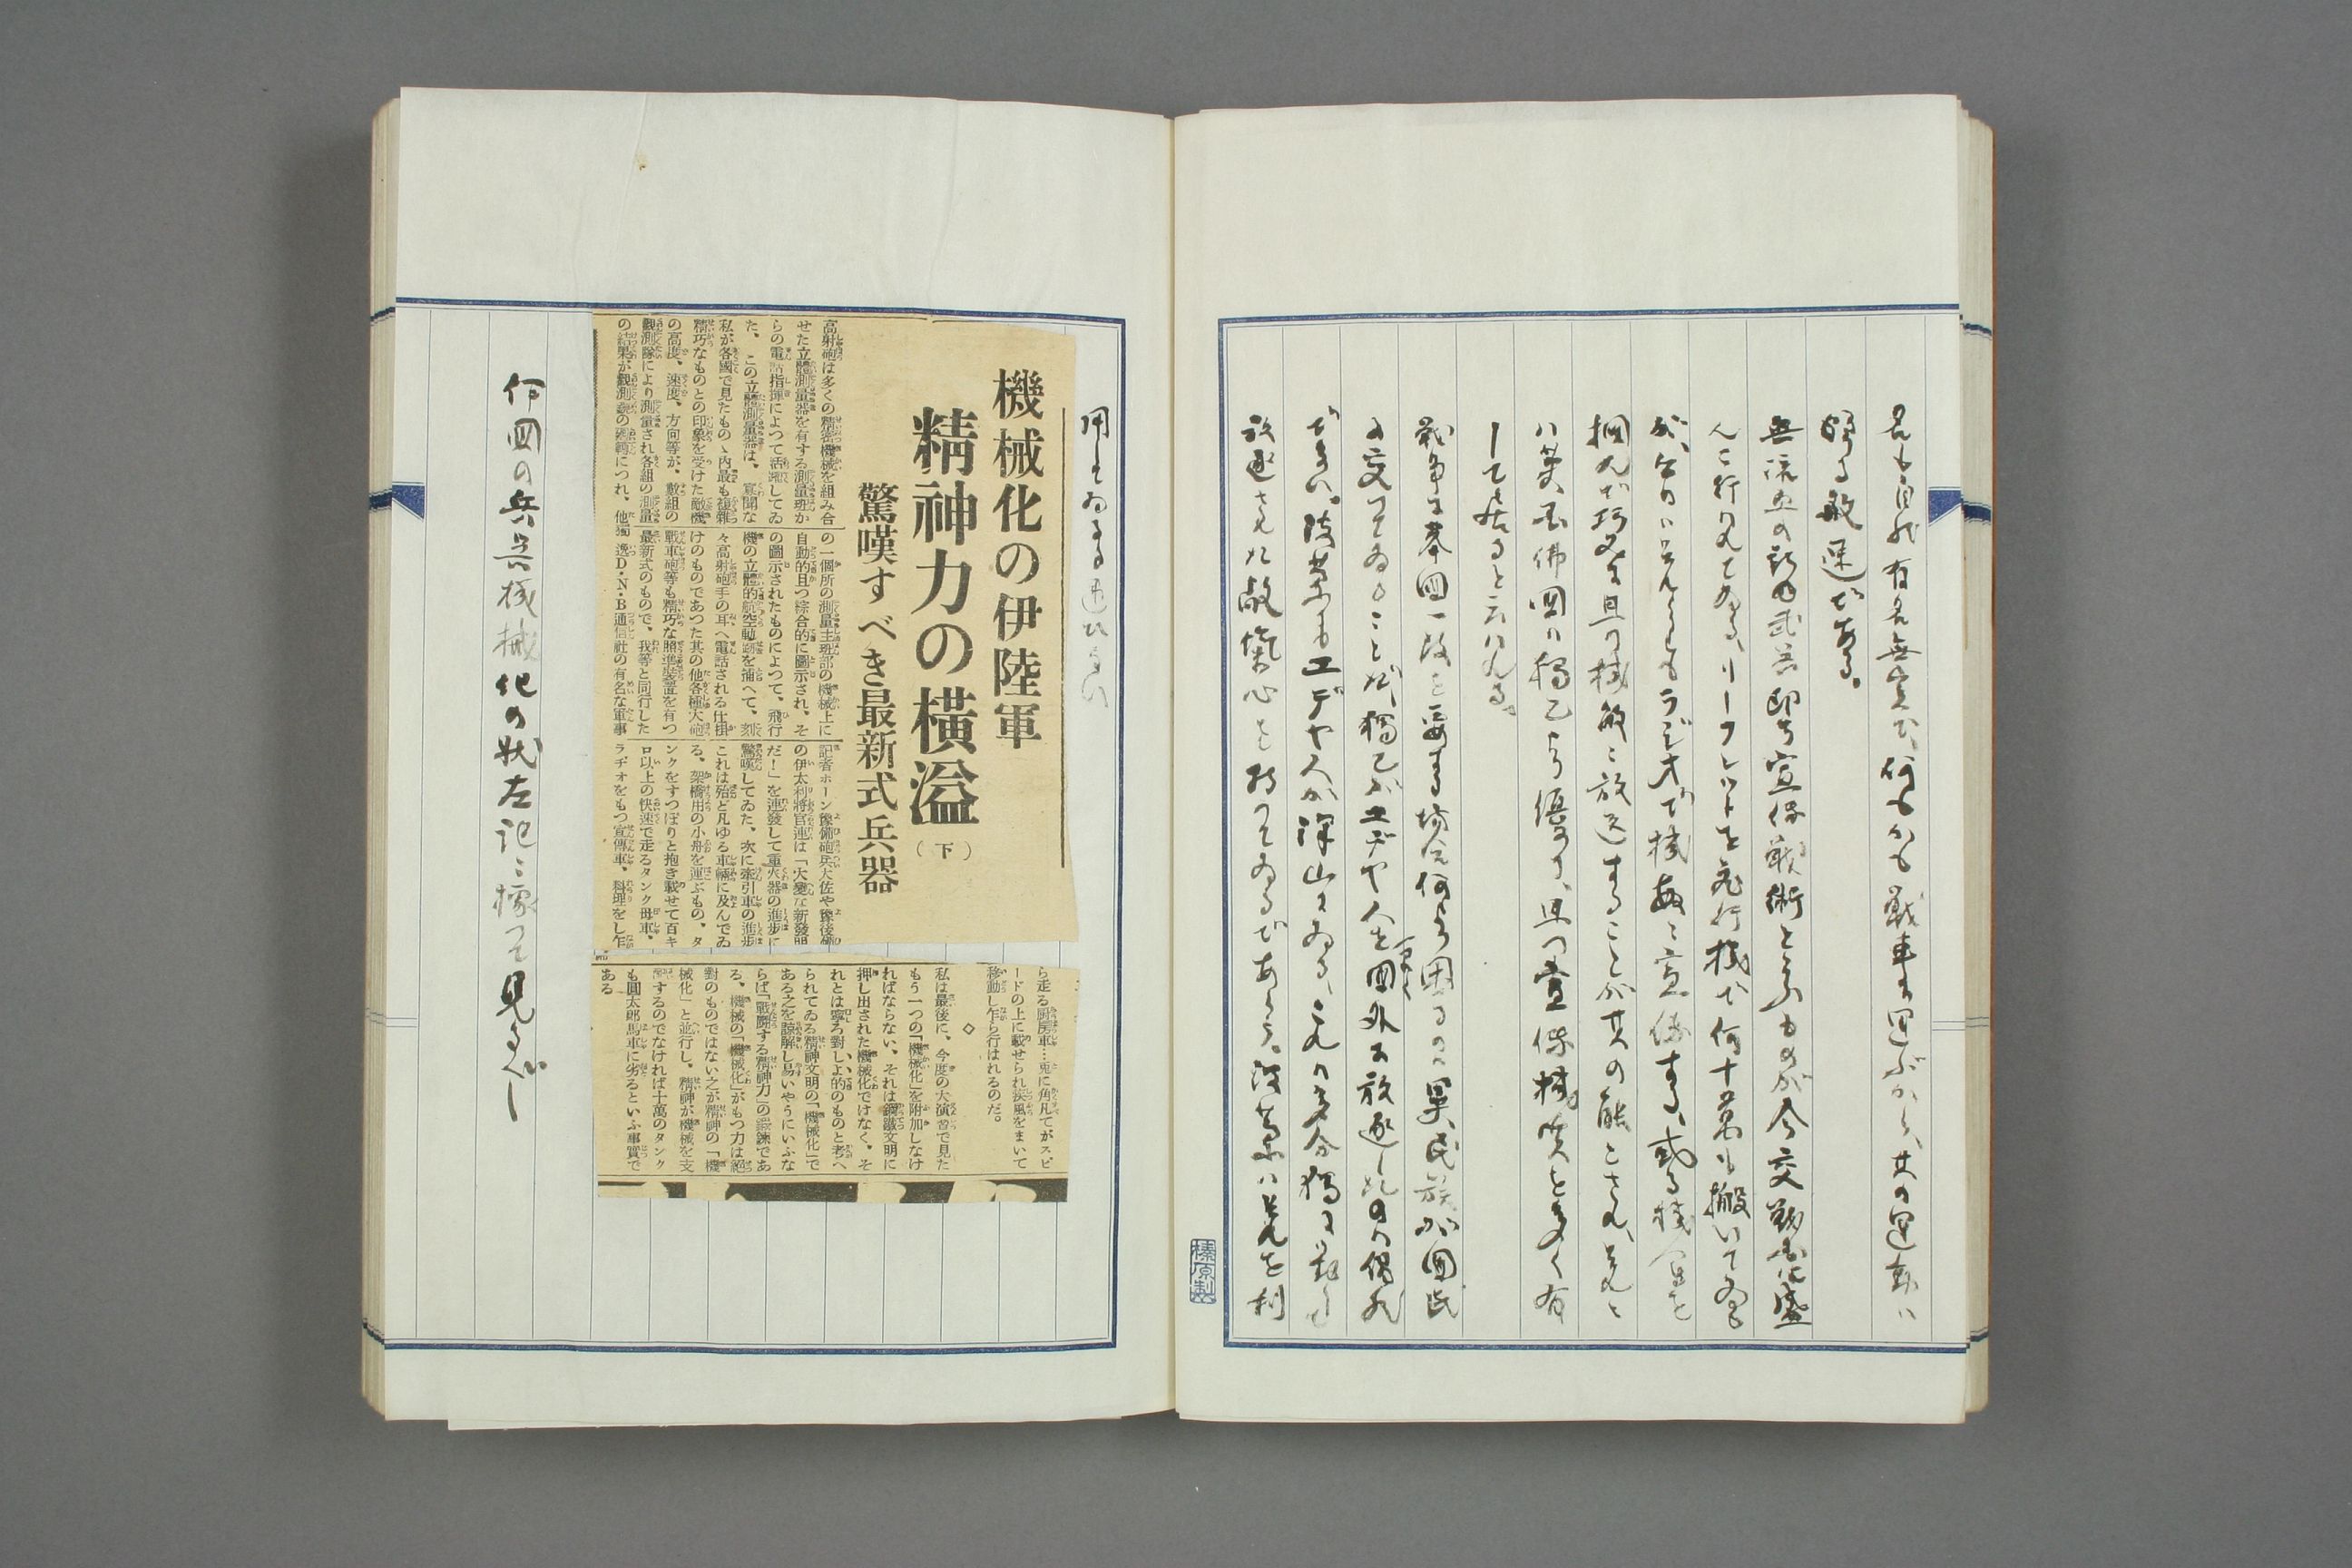 名も自然有名無実だ、何もかも戦車で運ぶから、其の運動は
頗る敏速である。
無流血の新武器即ち宣伝戦術といふものが今交戦国に盛
んに行はれてゐる、リーフレットを飛行機で何十萬も撒いてゐる
が、今日はそれよりもラジオで機敏に宣伝する、或る機会を
掴んだ巧妙な且つ機敏に放送することが其の能とされ、それ
は英国佛国は独乙より優り、且つ宣伝機関を多く有
して居ると云はれる。
戦争は挙国一致を要する場合何より困るのは異民族が国民
に交つてゐることだ、独乙がユデヤ人を国外に放逐したのは偶然
でない。波蘭にもユデヤ人が沢山にゐる、これは多分独に対し
放逐された敵愾心を持つてゐるであらう。波蘭はそれを利
用してゐるに違ひない
機械化の伊陸軍
精神力の横溢
（下）
驚嘆すべき最新式兵器
高射砲は多くの精密機械を組み合
せた立體測量器を有する測量班か
らの電話指揮によつて活躍してゐ
た、この立體測量器は、寡聞な
私が各國で見たものゝ内最も複雜
精巧なものとの印象を受けた敵機
の高度、速度、方向等が、數組の
觀測隊により測量され各組の測量
の結果が觀測鏡の廻轉につれ、他
の一個所の測量主班部の機械上に
自動的且つ綜合的に圖示され、そ
の圖示されたものによつて、飛行
機の立體的航空動跡を捕へて、刻
々高射砲手の耳へ電話される仕掛
けのものであつた其の他各種大砲
戰車砲等も精巧な照準裝置を有つ
最新式のもので、我等と同行した
獨逸D・N・B通信社の有名な軍事
記者ホーン豫備砲兵大佐や豫後備
の伊太利將官連は「大變な新發明
だ！」を連發して重火器の進步に
驚嘆してゐた、次に牽引車の進步
これは殆ど凡ゆる車輛に及んでゐ
る、架橋用の小舟を運ぶもの、タ
ンクをすつぽりと抱き載せて百キ
ロ以上の快速で走るタンク母車、
ラヂオをもつ宣傳車、料理をし乍
ら走る厨房車…兎に角凡てがスピ
ードの上に載せられ疾風をまいて
移動し乍ら行はれるのだ。
◇
私は最後に、今度の大演習で見た
もう一つの「機械化」を附加しなけ
ればならない、それは鋼鐵文明に
押し出された機械化でけなく、そ
れとは寧ろ對しよ的のものと考へ
られてゐる精神文明の「機械化」で
ある之を諒解し易いやうにいふな
らば「戰鬪する精神力」の鍛鍊であ
る、機械の「機械化」がもつ力は絕
對のものではない之が精神の「機
械化」と並行し、精神が機械を支
配するのでなければ十萬のタンク
も圓太郎馬車に劣るといふ事實で
ある
何国の兵器機械化の状左記に據つて見るべし
榛原製